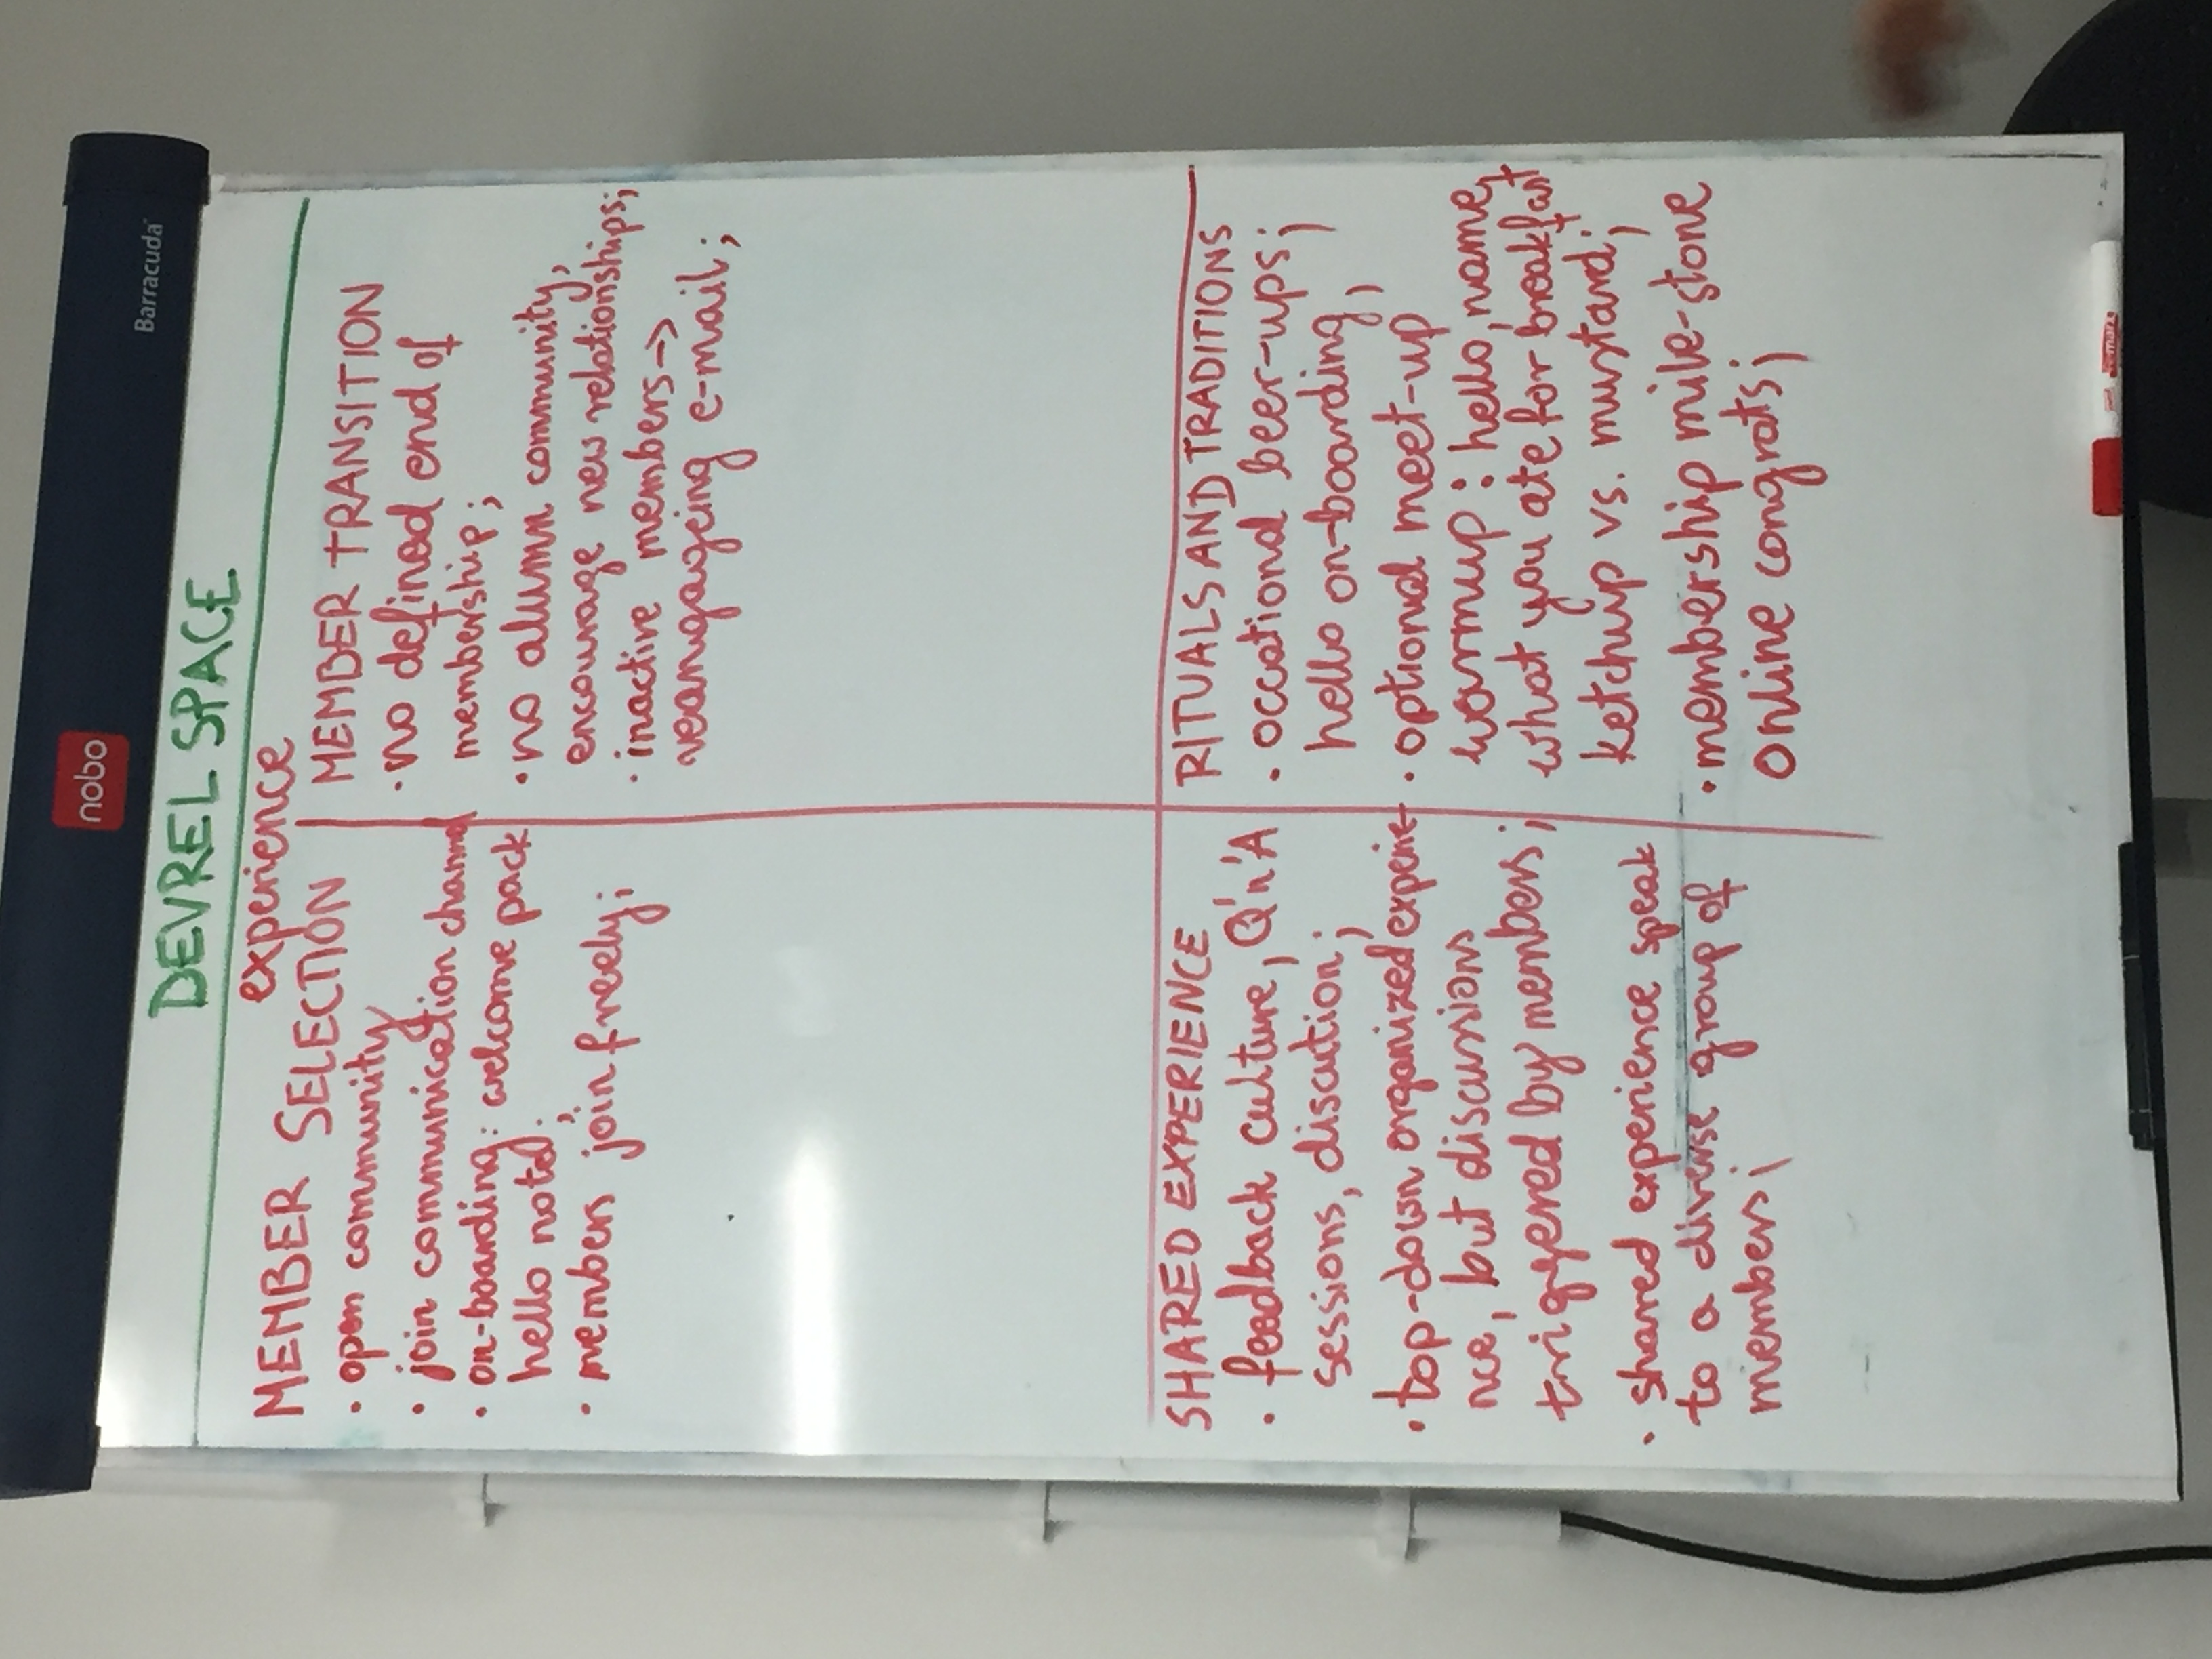 nobo
Barracuda
DEVREL SPACE
experience
MEMBER SELECTION
• open community
• join communication channel
• on-boarding: welcome pack
hello note;
• members join freely;
MEMBER TRANSITION
• no defined end of
membership;
• no alumn community,
encourage new relationships;
• inactive members ->
reangageing e-mail;
SHARED EXPERIENCE
• feedback culture, Q'n'A
sessions, discution;
• top-down organized experie-
nce, but discussions
triggered by members;
• shared experience speak
to a diverse group of
members;
RITUALS AND TRADITIONS
• occational beer-ups;
hello on-boarding,
• optional meet-up
warmup: hello, name,
what you ate for breakfast,
ketchup vs. mustard;
• membership mile-stone
online congrats;